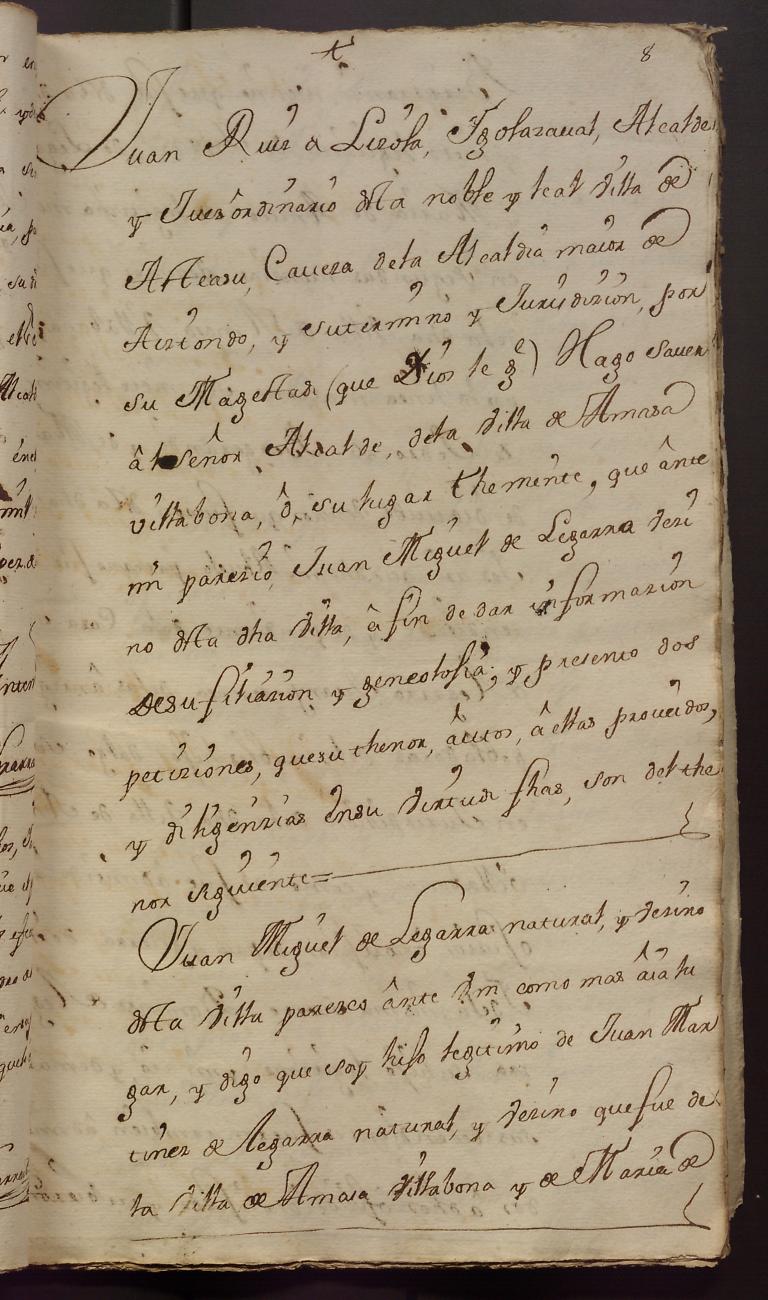 8
Juan Ruiz a Lizola, Ygolaraval, Alcalde
y Juez ordinario desta noble y leal Villa de
Asteasu, Caveza dela Alcaldia maior de
Aiztondo, y sutermino y Jurisdizion, por
su Magestad (que Dios le ge) Hago saver
âl señor Alcalde, dela Villa de Amasa
villabona, ô, su lugar themiente, que ânte
mi parezio Juan Miguel de Legarra vezi
no desta dha Villa, â fin de dar informazion
desu filiazion y geneolosia, y presento dos
petiziones, quesu thenor, âutos, â ellas proveidos,
y diligenzias ênsu virtud fhas, son del the
nor siguiente=
Juan Miguel de Legarra natural, y vezino
desta Villa parezco ânte Vm como mas âia lu
gar, y digo que soy hijo legitimo de Juan Mar
tinez de Legarra natural, y vezino quefue de
la Villa de Amasa Villabona y de Maria de